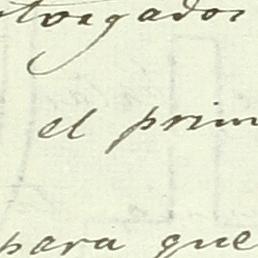 otorgados
el prim
para que